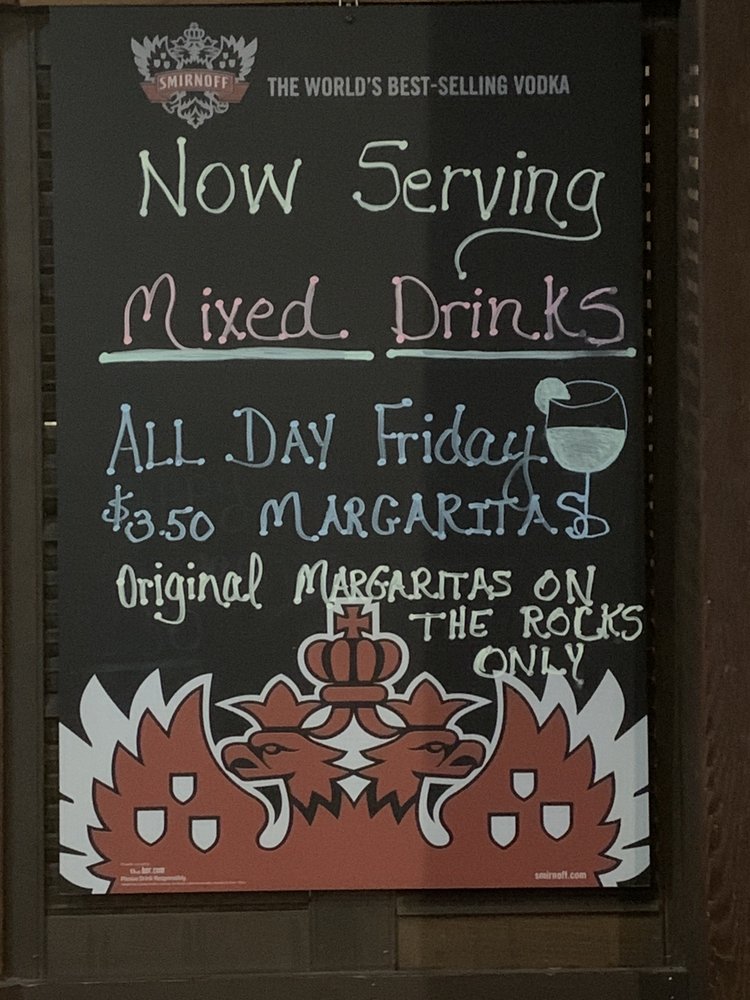 SMIRNOFF
THE WORLD'S BEST-SELLING VODKA
Now Serving
Mixed Drinks
ALL DAY Friday
$3.50 MARGARITAS
Original MARGARITAS ON
THE ROCKS
ONLY
the bar.com
Please Drink Responsibly.
smirnoff.com